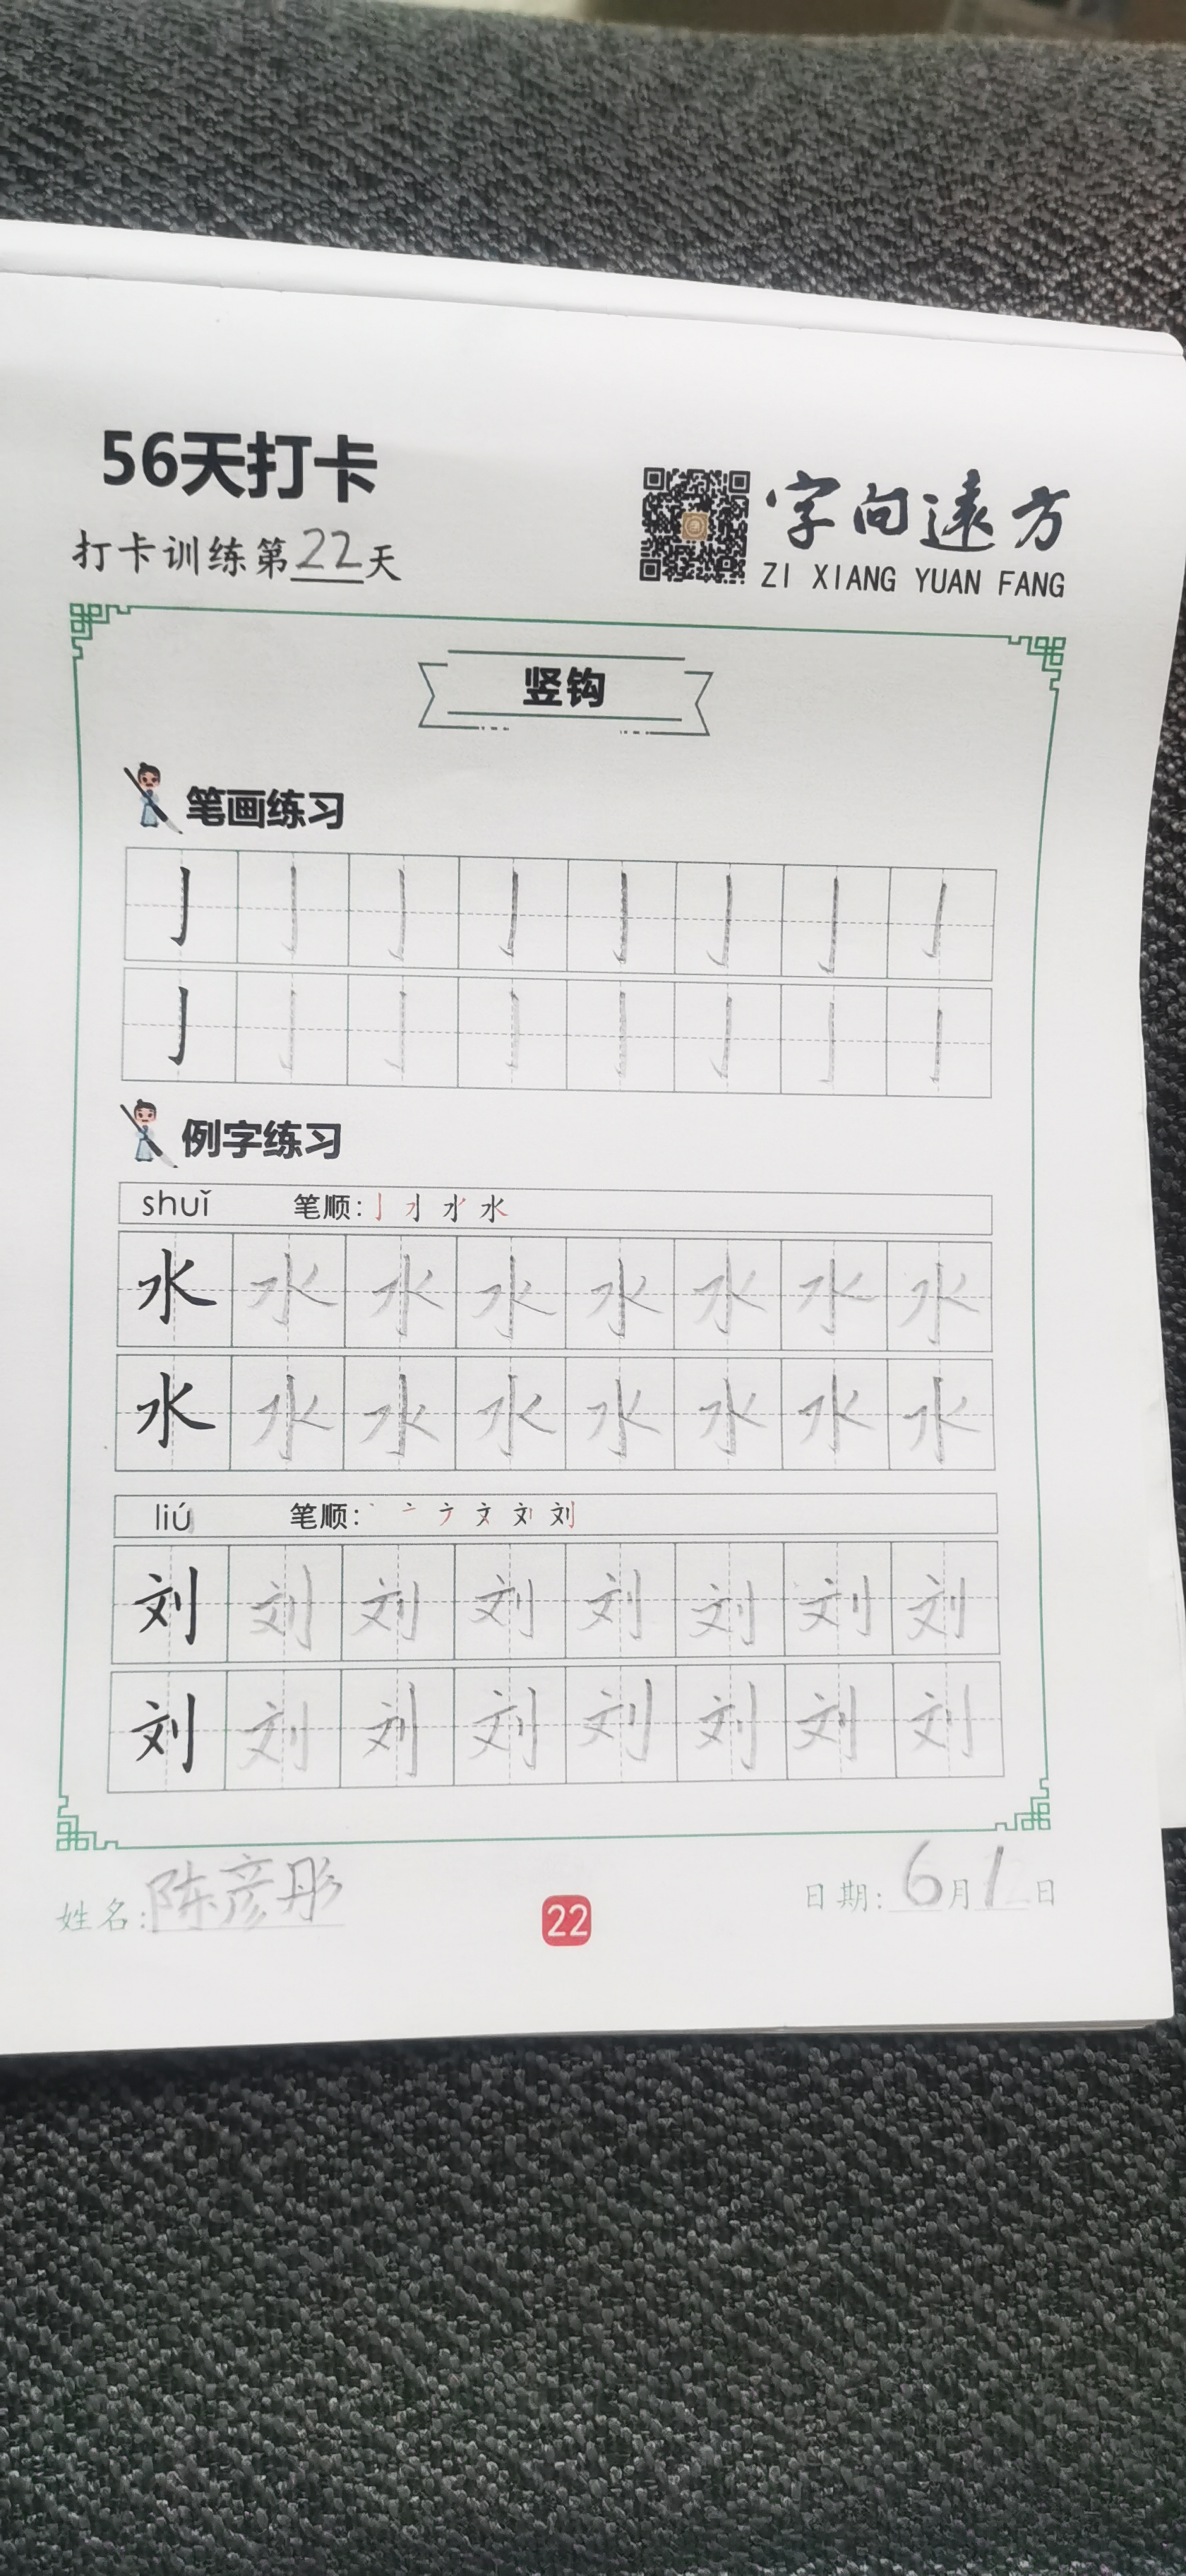 56天打卡
打卡训练第22天
字向遠方
ZI XIANG YUAN FANG
竖钩
笔画练习
亅 亅 亅 亅 亅 亅 亅 亅
亅 亅 亅 亅 亅 亅 亅 亅
例字练习
shuǐ 笔顺: 亅 水
水 水 水 水 水 水 水 水
水 水 水 水 水 水 水 水
liú 笔顺: 丶 亠 文 刘
刘 刘 刘 刘 刘 刘 刘 刘
刘 刘 刘 刘 刘 刘 刘 刘
姓名:陈彦彤
22
日期:6月1日